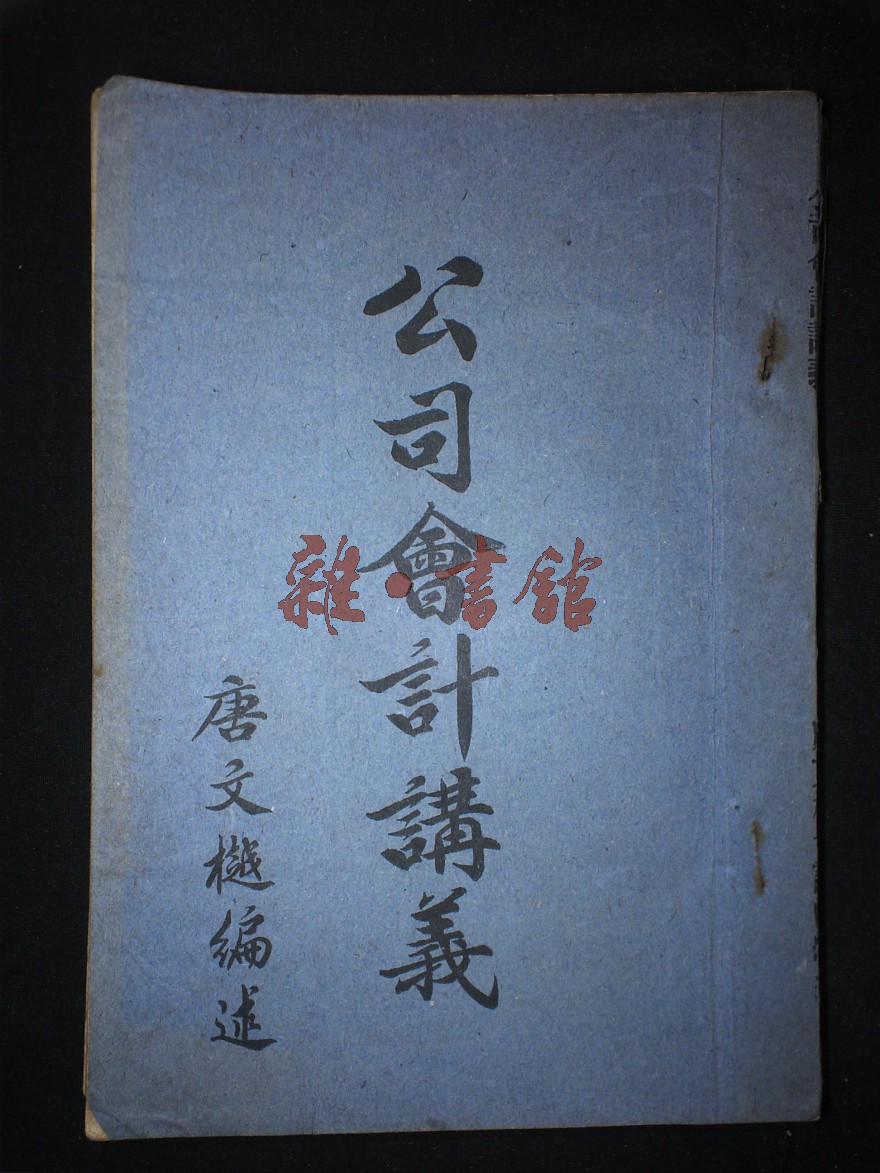 公司會計講義
唐文樾編述
雜·書館